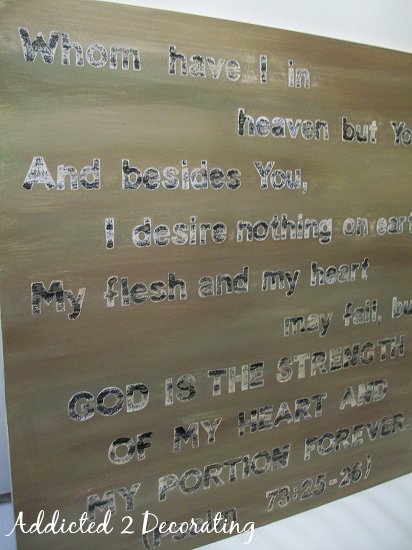 Whom have I in
heaven but Yo
And besides You,
I desire nothing on eart
My flesh and my heart
may fail, bu
GOD IS THE STRENGTH
OF MY HEART AND
MY PORTION FOREVER.
(Psalm 73:25-26)
Addicted 2 Decorating